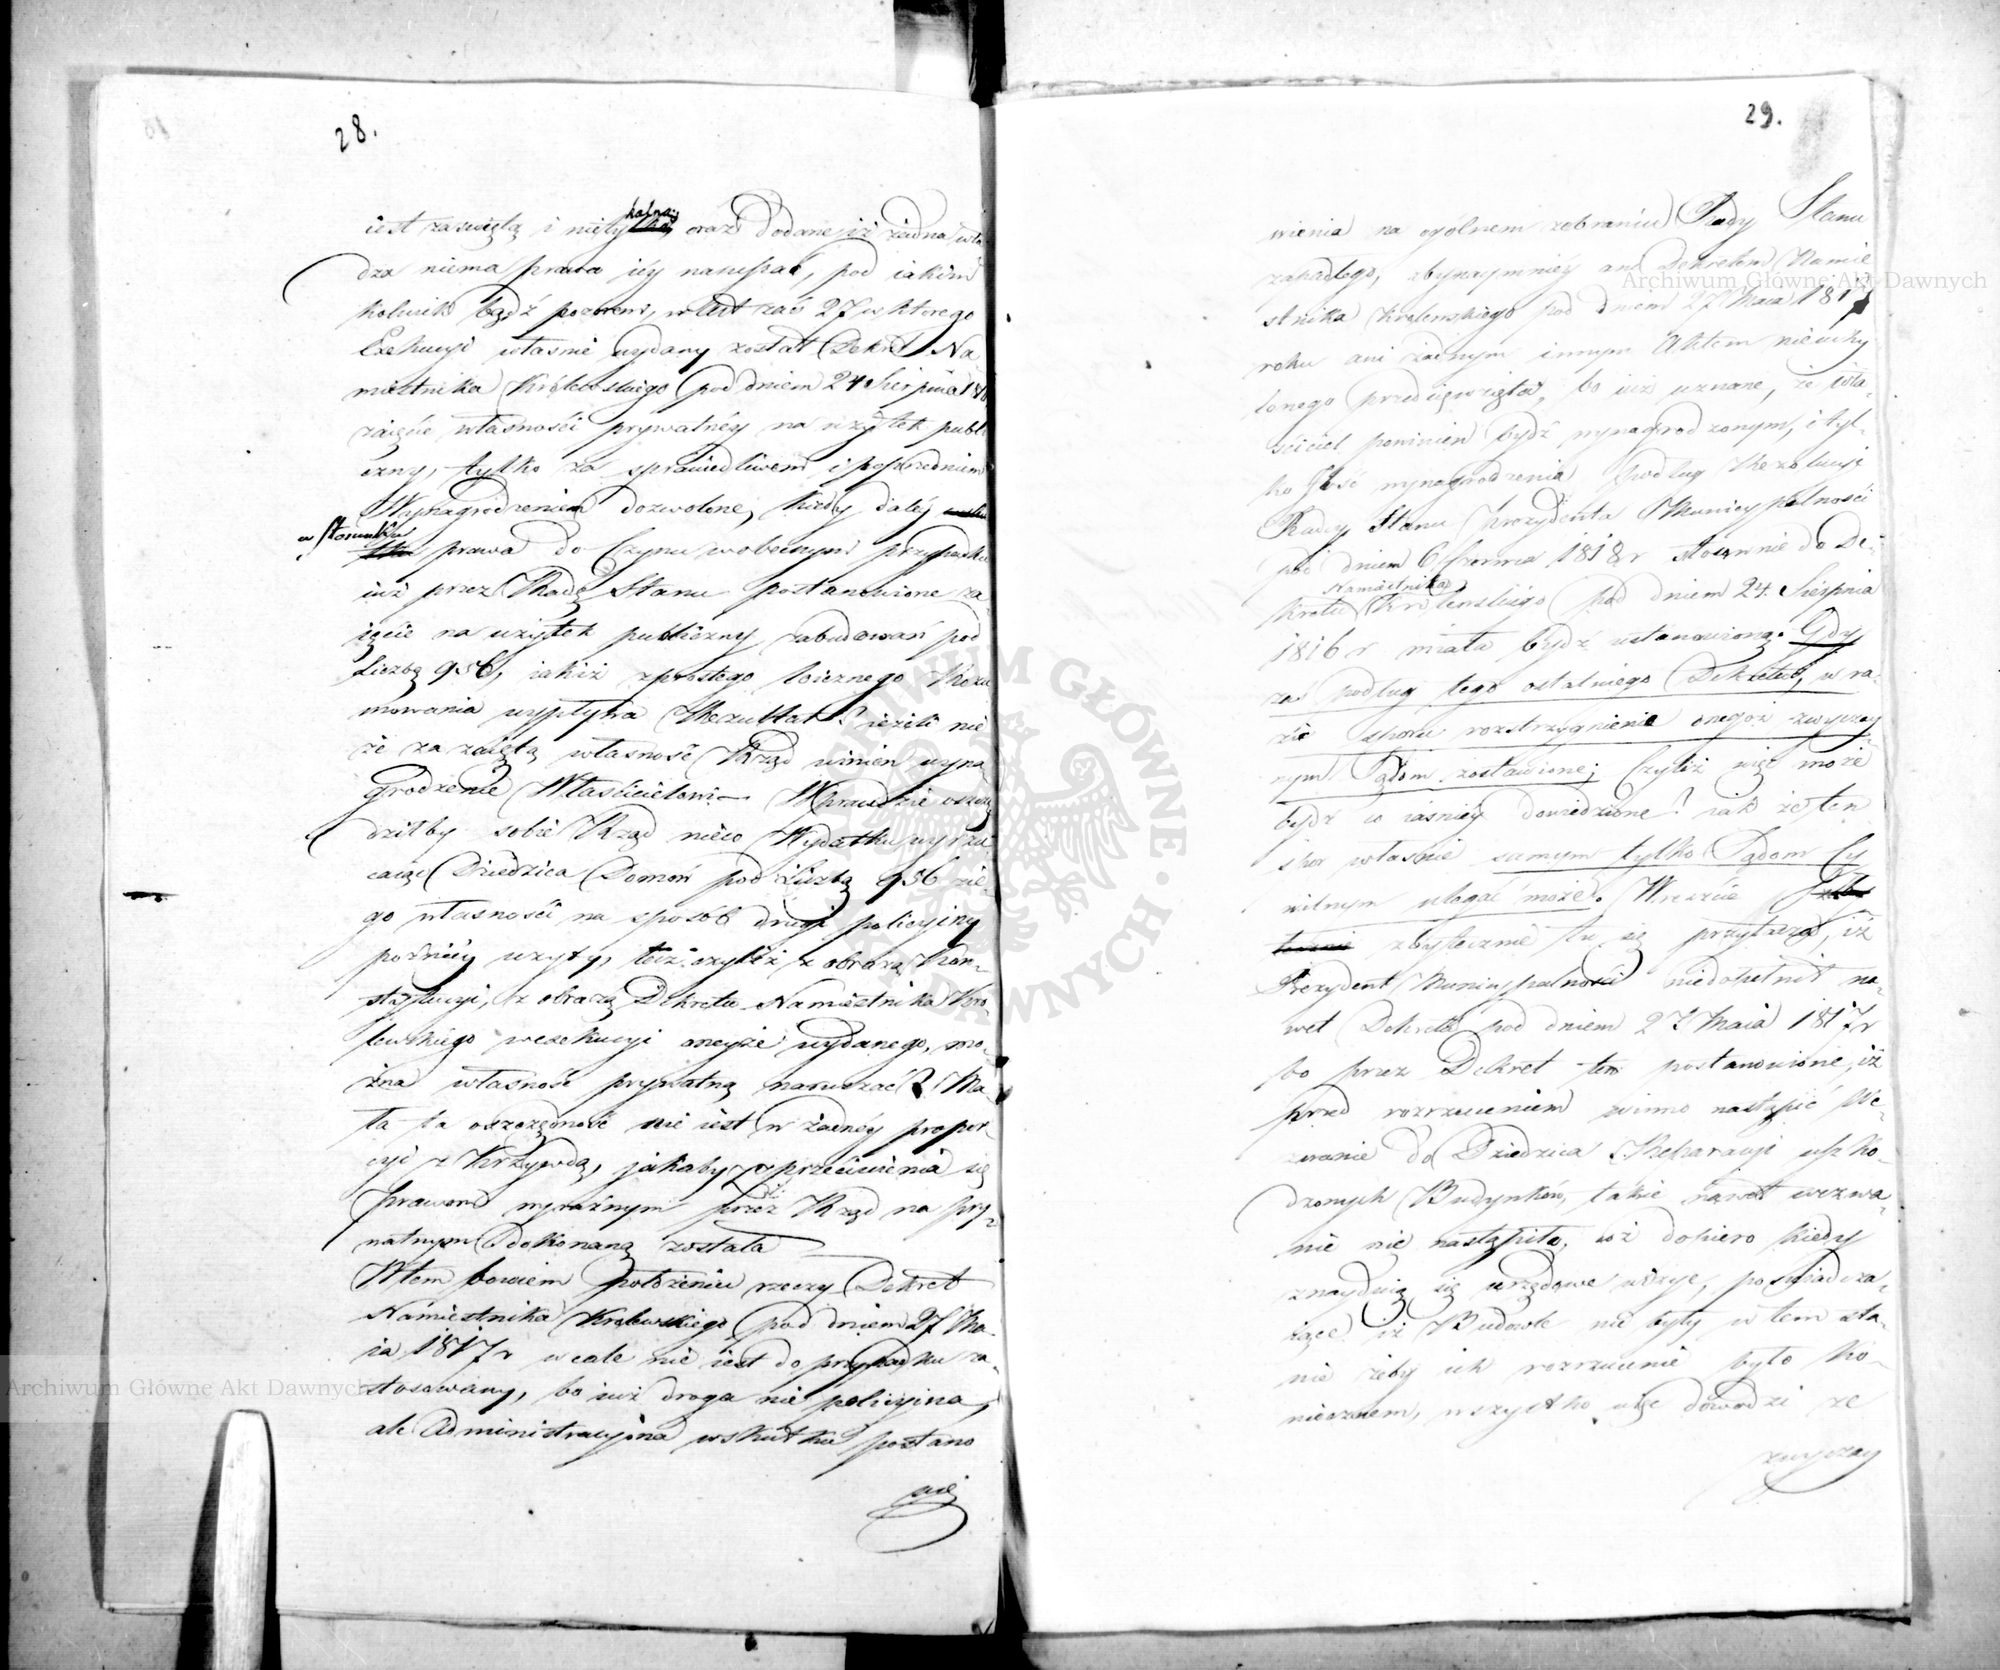 28.
iest zawiętą i nietykalną, oraz Dodane iż żadna wła
dza niema prawa iéy naruszać, pod iakim
kolwiek bądź pozorem, w Art zaś 27 w którego
Exekucyi właśnie wydany został Dekret Na
miestnika Królewskiego pod dniem 24 Sierpnia 181
zaięcie własności prywatnéy na użytek publi
czny, tylko za sprawiedliwem i poprzedniem
Wynagrodzeniem dozwolone, kiedy daléy
w stosunku prawa do Czynu w obecnym przypadku
iuż przez Radę Stanu postanowione za
ięcie na użytek publiczny zabudowań pod
Liczbą 956, iakiż z prostego
mowania wypływa Rezultat? ieżeli nie
że za zaiętą własność Rząd winien wyna
grodzenie Właścicielowi – Wprawdzie oszczę
dziłby sobie Rząd nieco Wydatku wyrzu
caiąc Dziedzica Domów pod Liczbą 956 z ie-
go własności na sposób drugi policyiny
poźniéy użyty, lecz czyliż z obrazą Kon-
stytucyi, z obrazą Dekretu Namiestnika Kró
lewskiego w exekucyi oneyże wydanego, mo-
żna własność prywatną naruszać? Ma
ła ta oszczędność nie iest w żadnéy propor-
cyi z krzywdą, jakaby z przeciwienia się
prawom wyraźnym przez Rząd na pry-
watnym dokonaną została
W tem bowiem położeniu rzeczy Dekret
Namiestnika Królewskiego pod dniem 27 Ma-
ia 1817 r wcale nie iest do przypadku za-
stosowany, bo iuż droga nie policyina,
ale Administracyina wskutku postano
wie
29.
wienia na ogólnem zebraniu Rady Stanu
zapadłego, a bynaymniéy ani Dekretem Namie
stnika Królewskiego pod dniem 27 Maia 1817
roku ani żadnym innym Aktem nieuchy
lonego przedsięwzięta, bo iuż uznane, że wła-
ściciel powinien bydź wynagrodzonym, i tyl-
ko ilość wynagrodzenia podług Rezolucyi
Rady Stanu Prezydenta Municypalności
pod dniem 6 Czerwca 1818 r stosownie do De-
kretu Namiestnika Królewskiego pod dniem 24 Sierpnia
1816 r miała bydź ustanowioną. Gdy
zaś podług tego ostatniego Dekretu, w ra-
zie sporu rozstrzygnienie onegoż zwyczay
nym Sądom zostawione; Czyliż więc może
bydź co iaśniéy dowiedzione? iak że ten
spor właśnie samym tylko Sądom Cy
wilnym ulegać może. Wreszcie
zbytecznie tu się przytacza, iż
Prezydent Municypalności niedopełnił na-
wet Dekretu pod dniem 27 Maia 1817 r
bo przez Dekret ten postanowione, iż
przed rozrzuceniem winno nastąpić We-
zwanie do Dziedzica Reparacyi uszko-
dzonych Budynków, takie nawet wezwa-
nie nie nastąpiło, coż dopiero kiedy
znayduią się urzędowe wizye, poświadcza-
iące iż Budowle nie były w tem sta-
nie żeby ich rozrzucenie było ko-
niecznem, wszystko więc dowodzi że
zwyczay
Archiwum Główne Akt Dawnych
Archiwum Główne Akt Dawnych
ARCHIWUM GŁÓWNE · AKT DAWNYCH ·